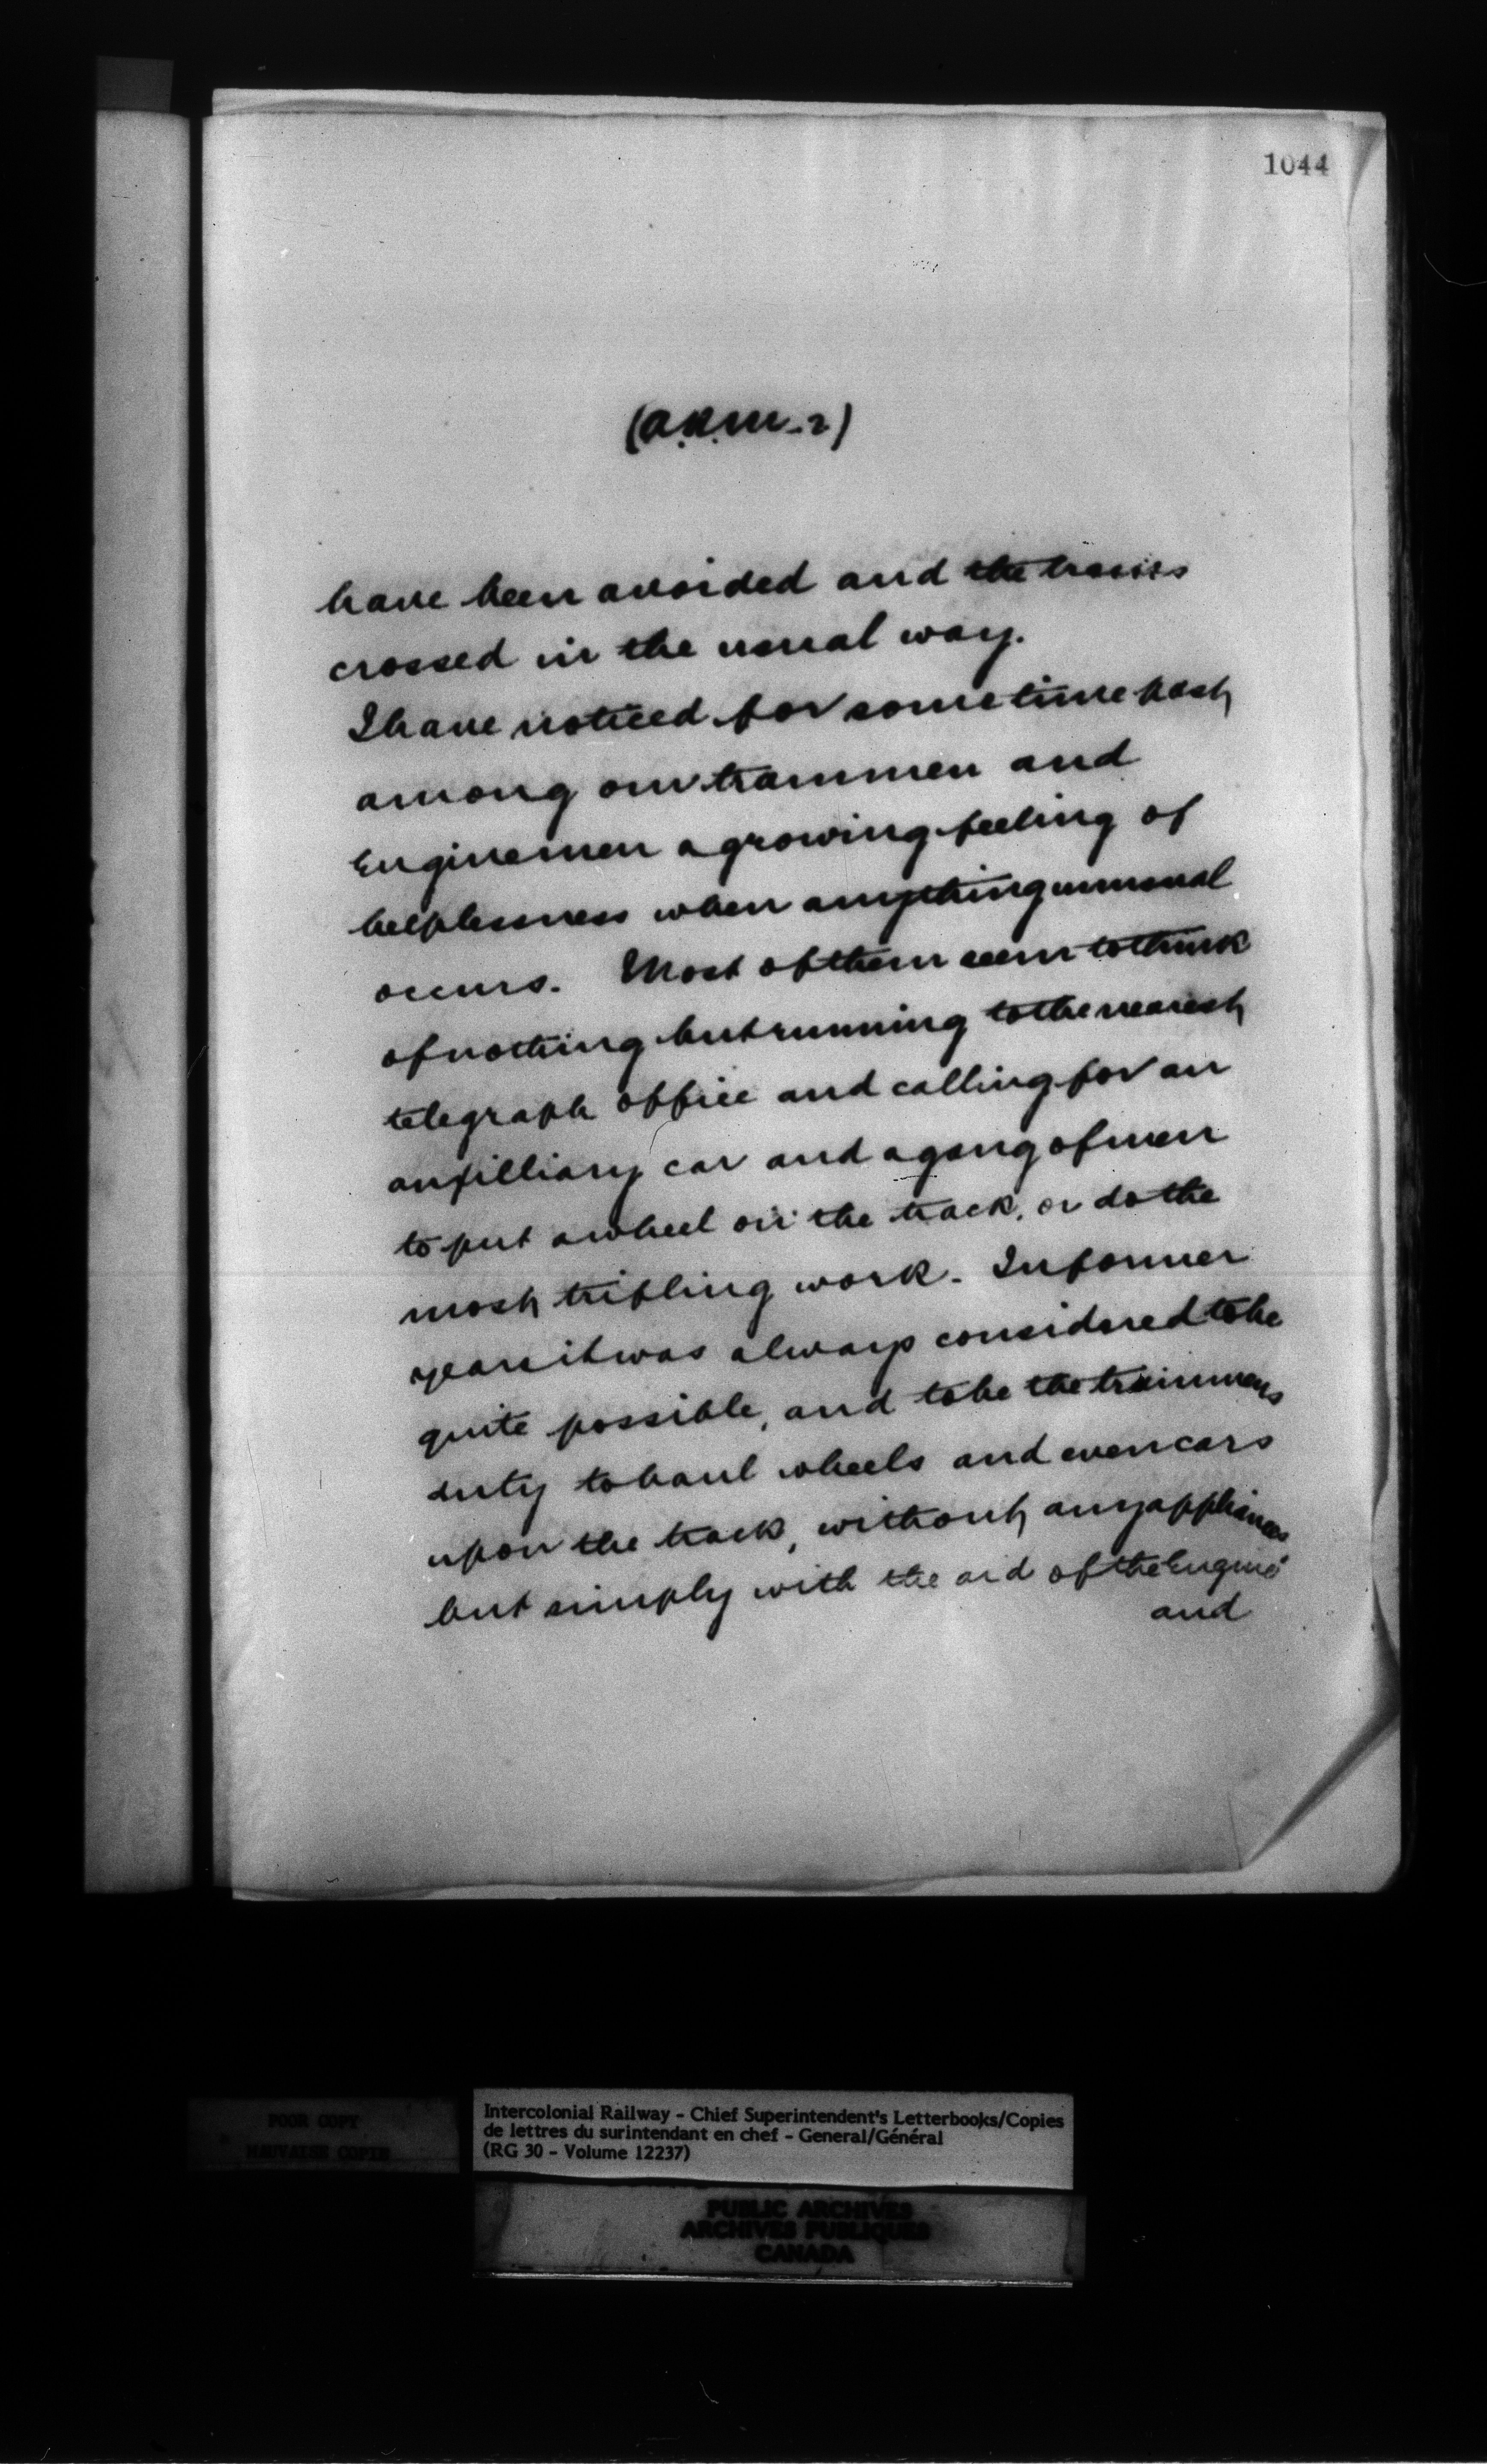 1044
(A.R.M. - 2)
have been avoided and the trains
crossed in the usual way.
I have noticed for some time past
among our trainmen and
Enginemen a growing feeling of
helplessness when anything unusual
occurs. Most of them seem to think
of nothing but running to the nearest
telegraph office and calling for an
auxilliary car and a gang of men
to put a wheel on the track, or do the
most trifling work. In former
years it was always considered to be
quite possible, and to be the trainmens
duty to haul wheels and even cars
upon the track, without any appliances
but simply with the aid of the Engine
and
POOR COPY
MAUVAISE COPIE
Intercolonial Railway - Chief Superintendent's Letterbooks/Copies
de lettres du surintendant en chef - General/Général
(RG 30 - Volume 12237)
PUBLIC ARCHIVES
ARCHIVES PUBLIQUES
CANADA